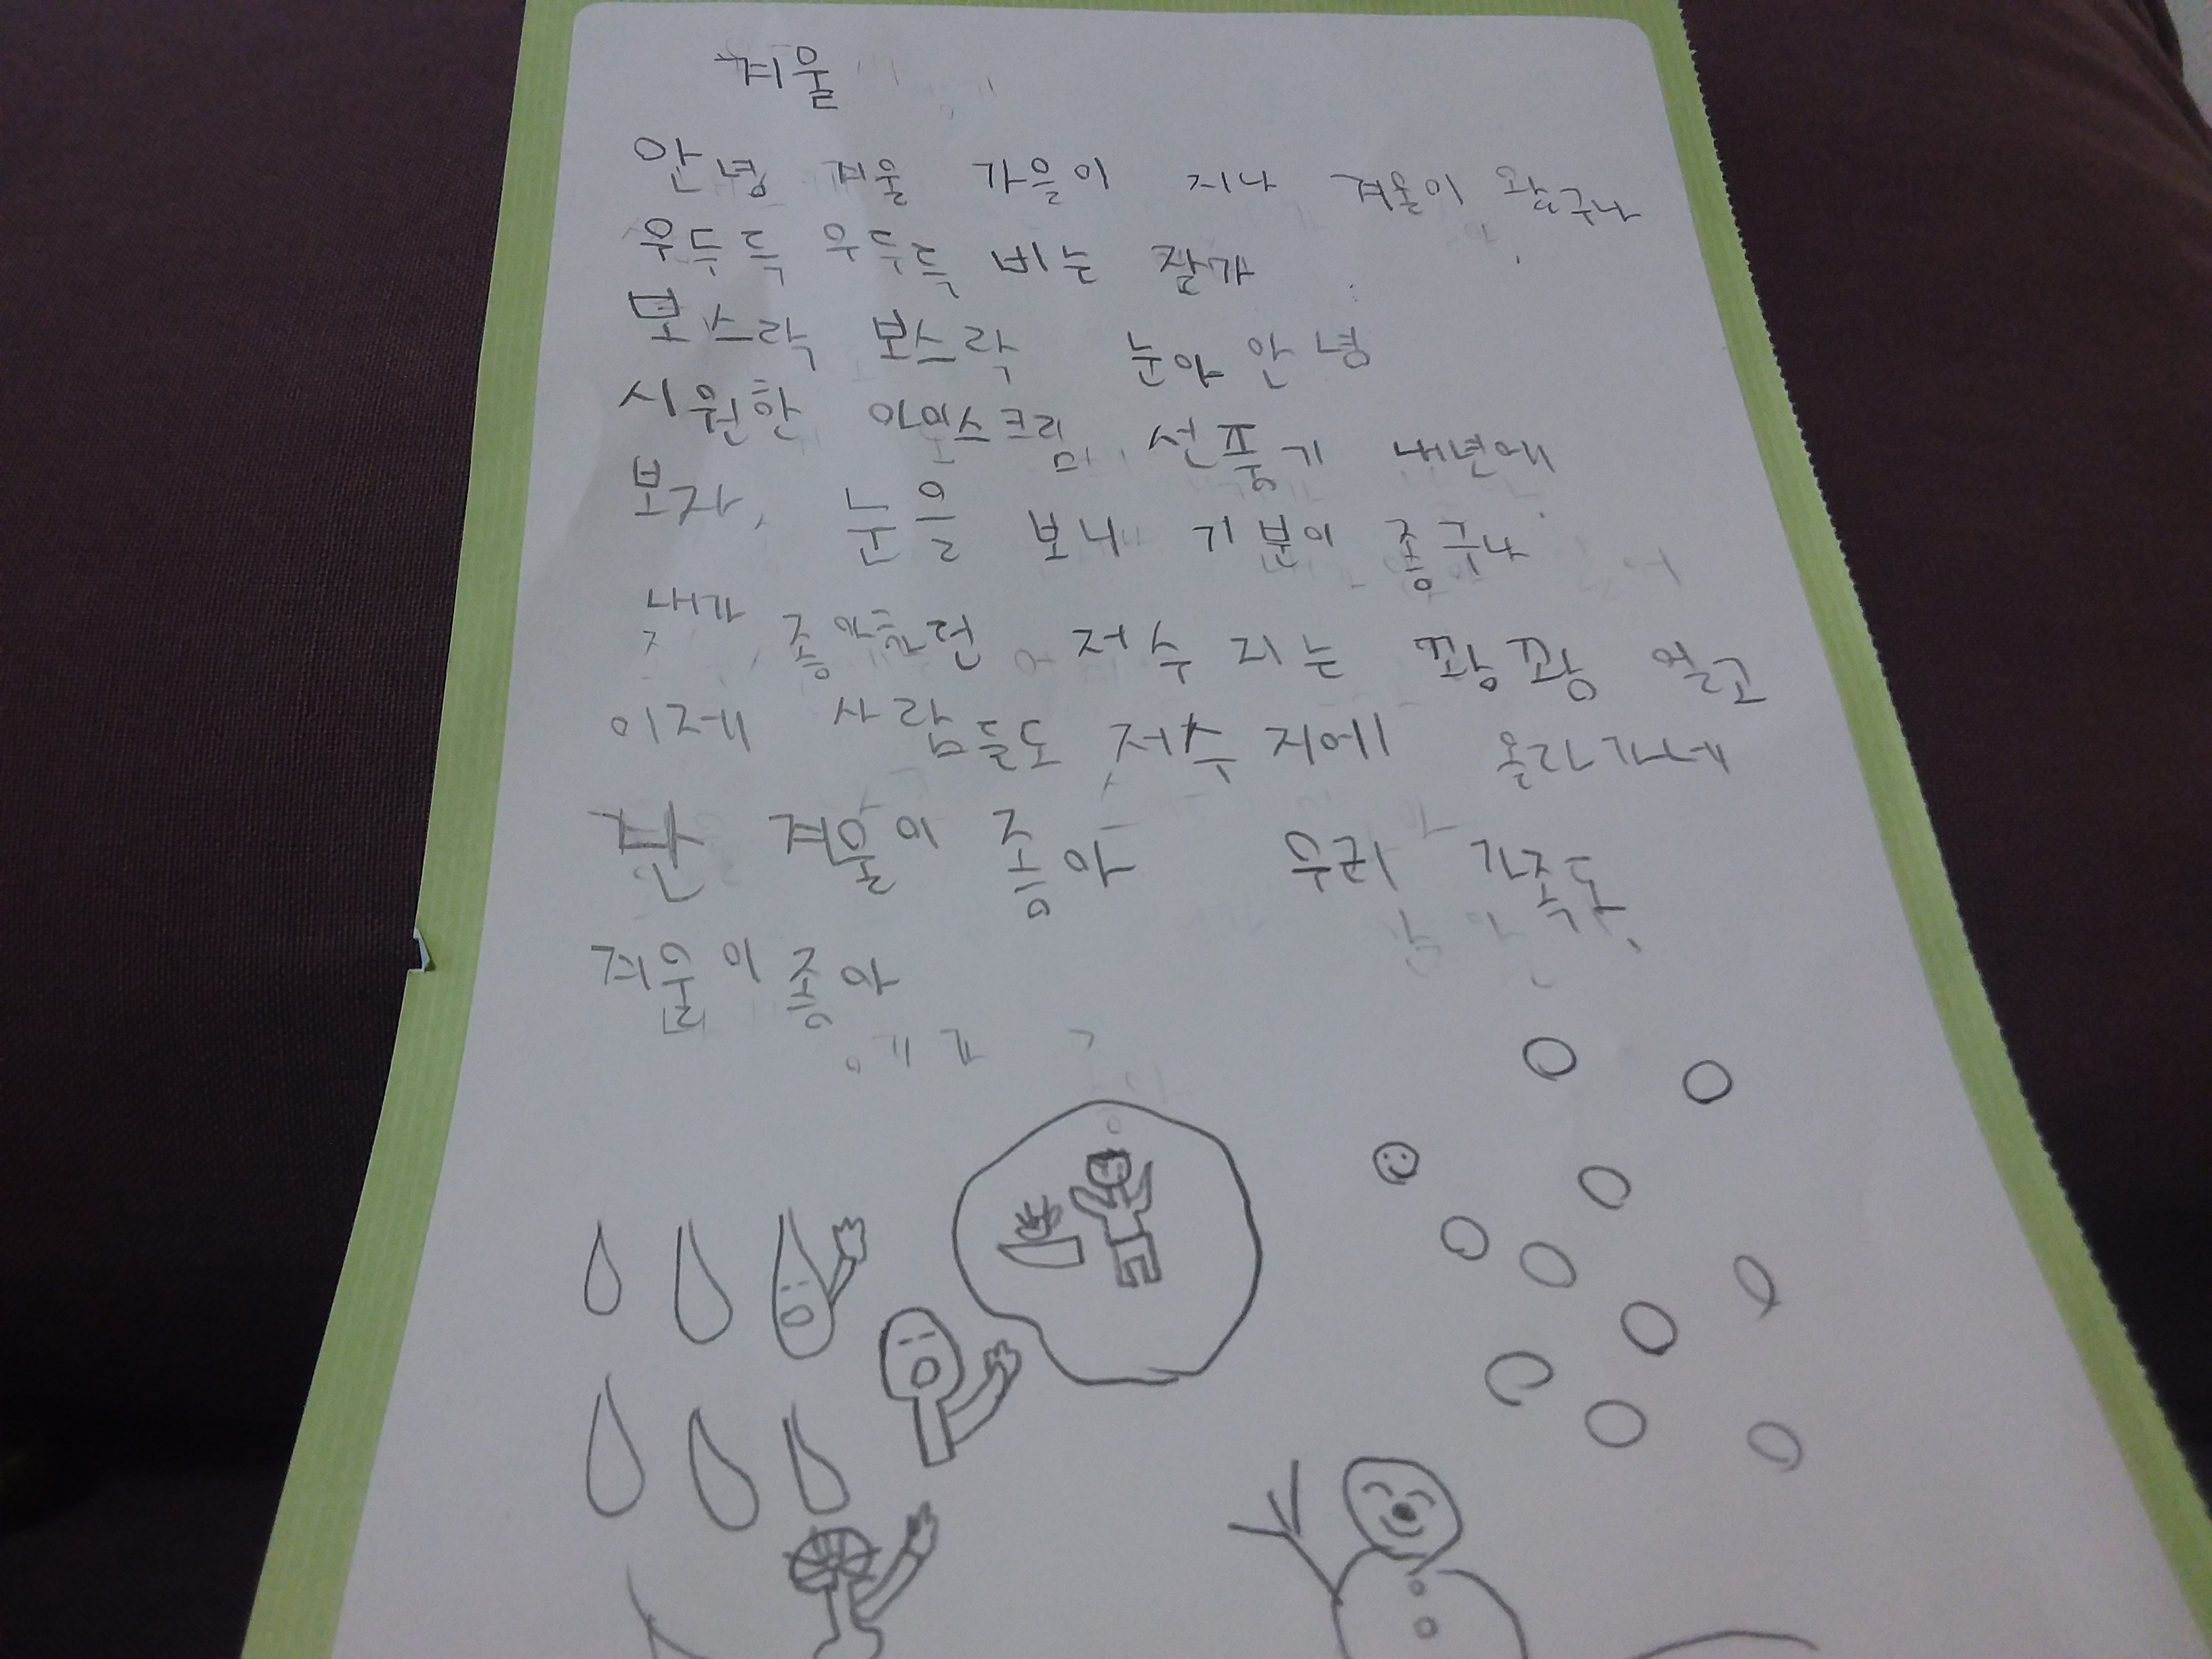 겨울
안녕 겨울 가을이 지나 겨울이 왔구나
우두둑 우두둑 비는 잘가
보스락 보스락 눈아 안녕
시원한 아이스크림 선풍기 내년에
보자, 눈을 보니 기분이 좋구나
내가 좋아하던 저수지는 꽝꽝 얼고
이제 사람들도 저수지에 올라가네
난 겨울이 좋아 우리 가족도
겨울이 좋아